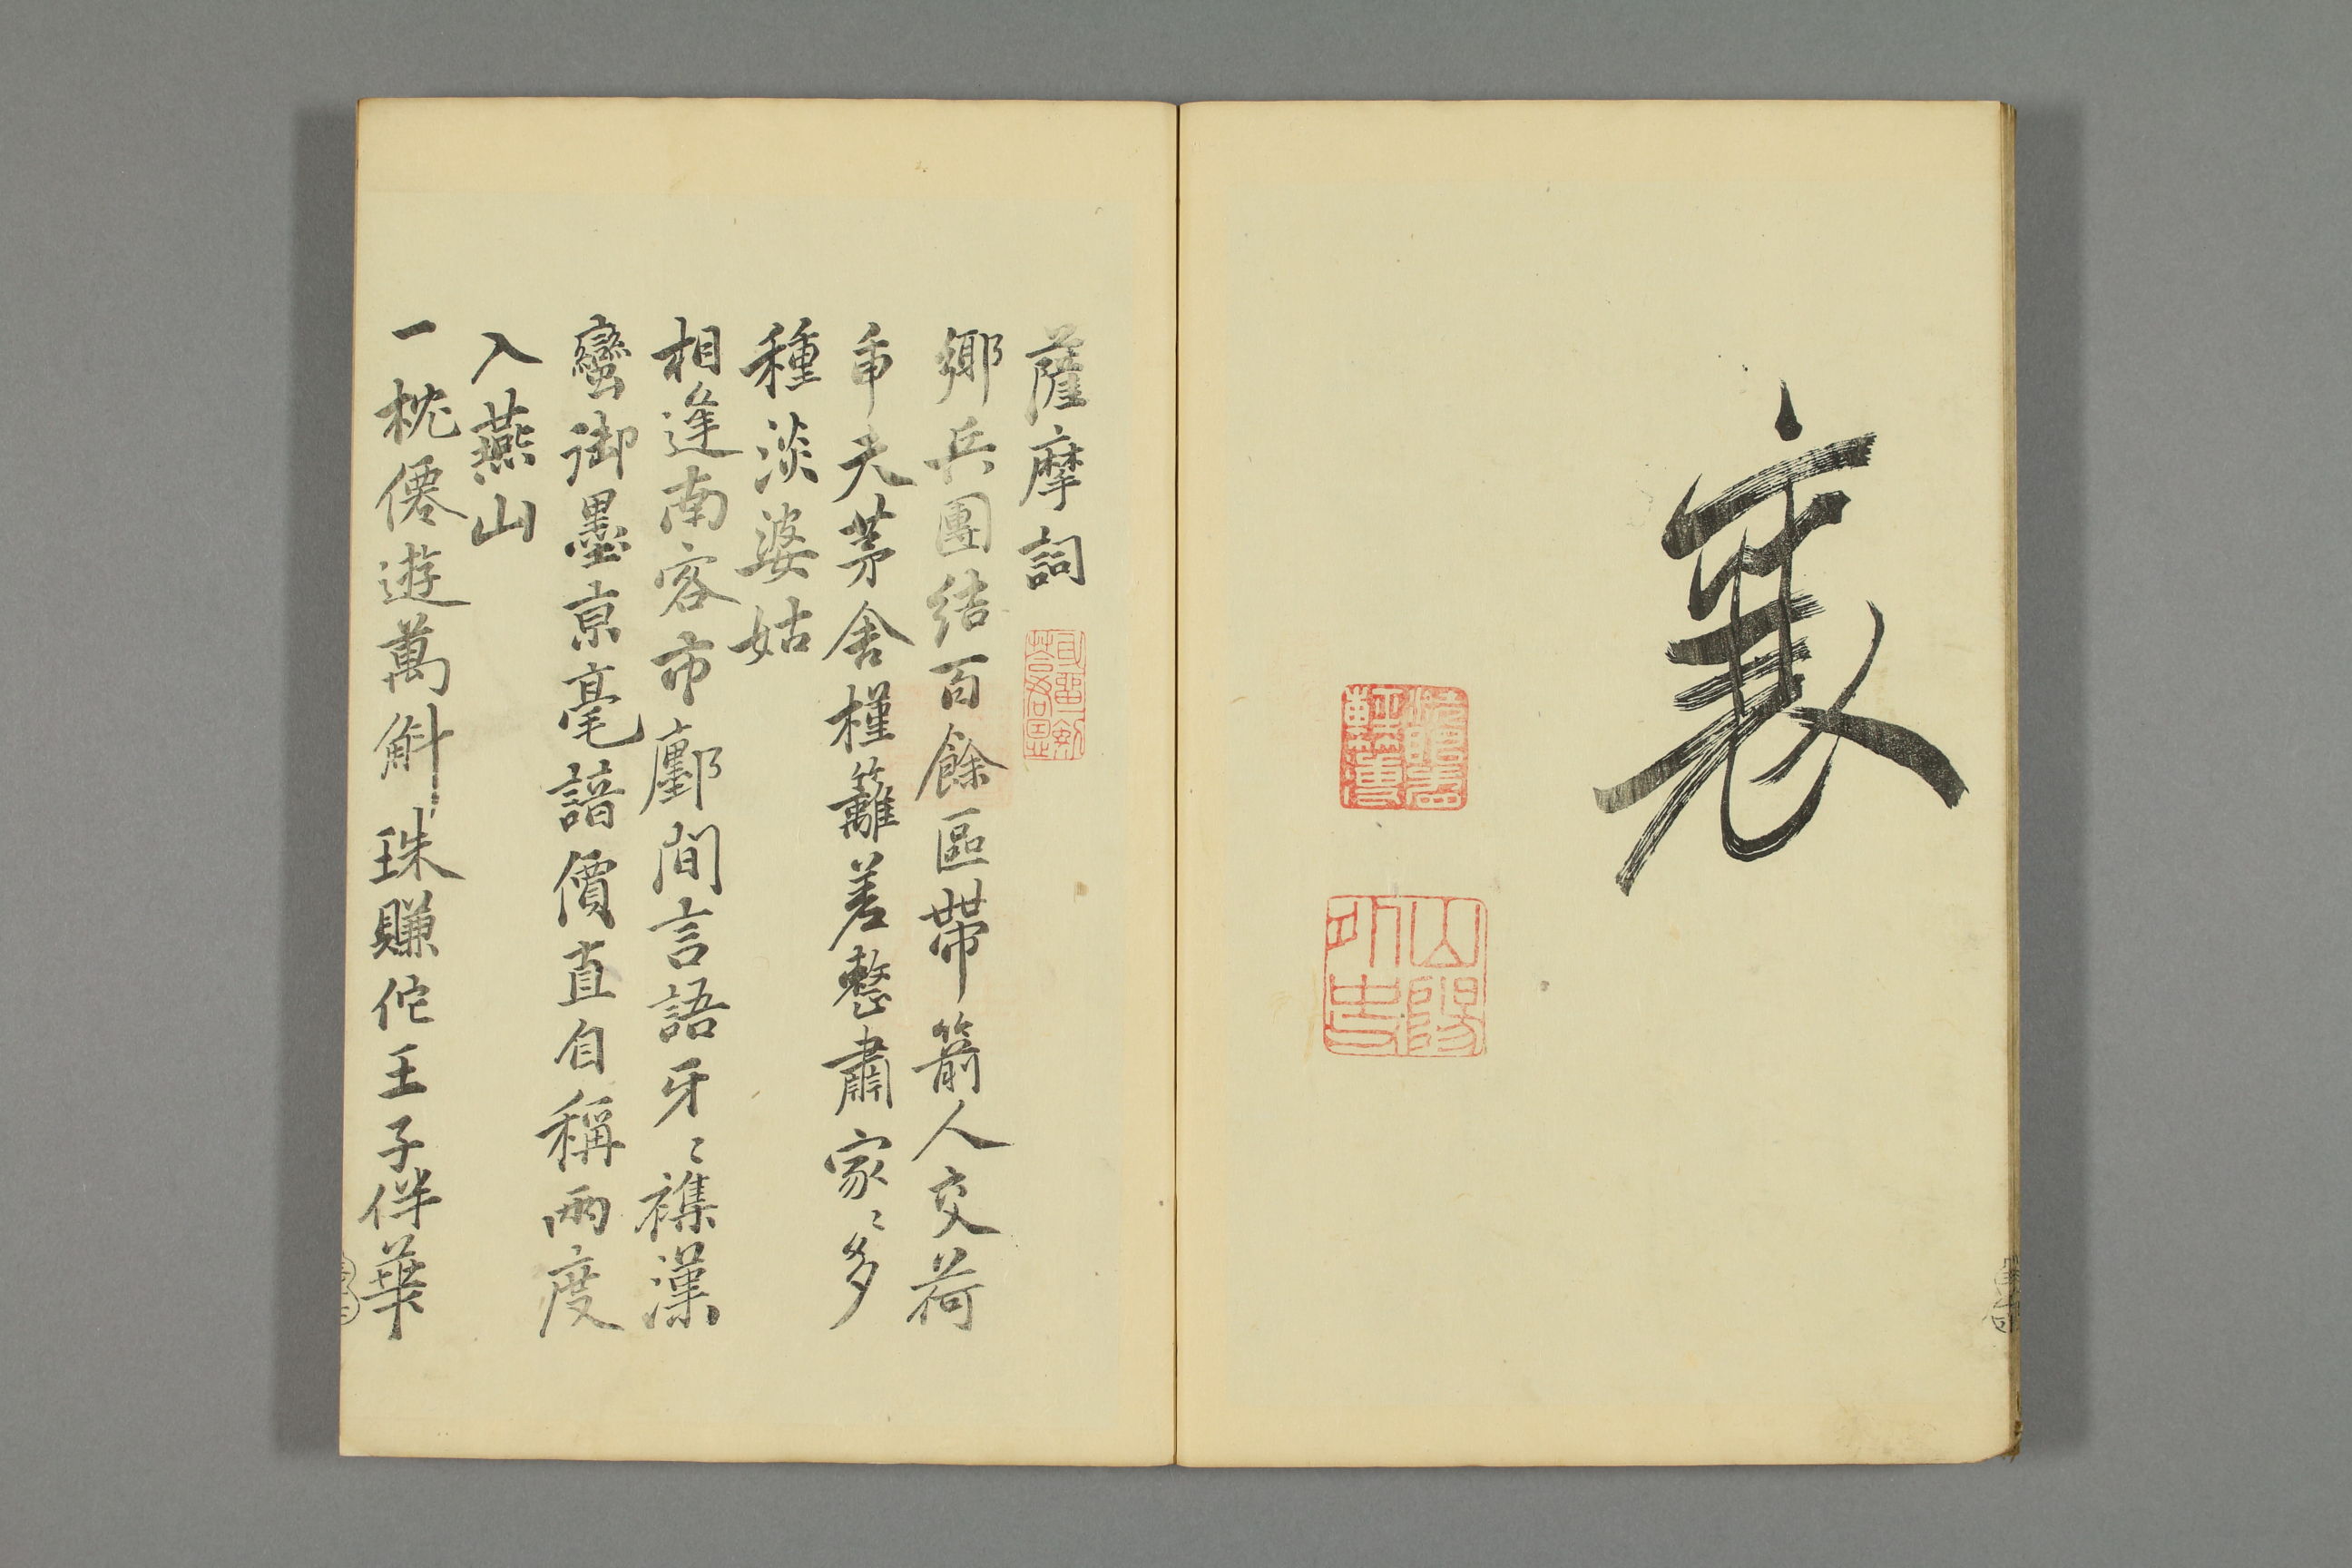 襄
山陽
外史
薩摩詞
鄉兵團結百餘區帶箭人交荷
耒夫茅舍槿籬差整肅家〻多
種淡婆姑
相逢南客市廛間言語牙〻襍漢
蠻御墨京毫諳價直自稱兩度
入燕山
一枕僊遊萬斛珠賺佗王子伴華